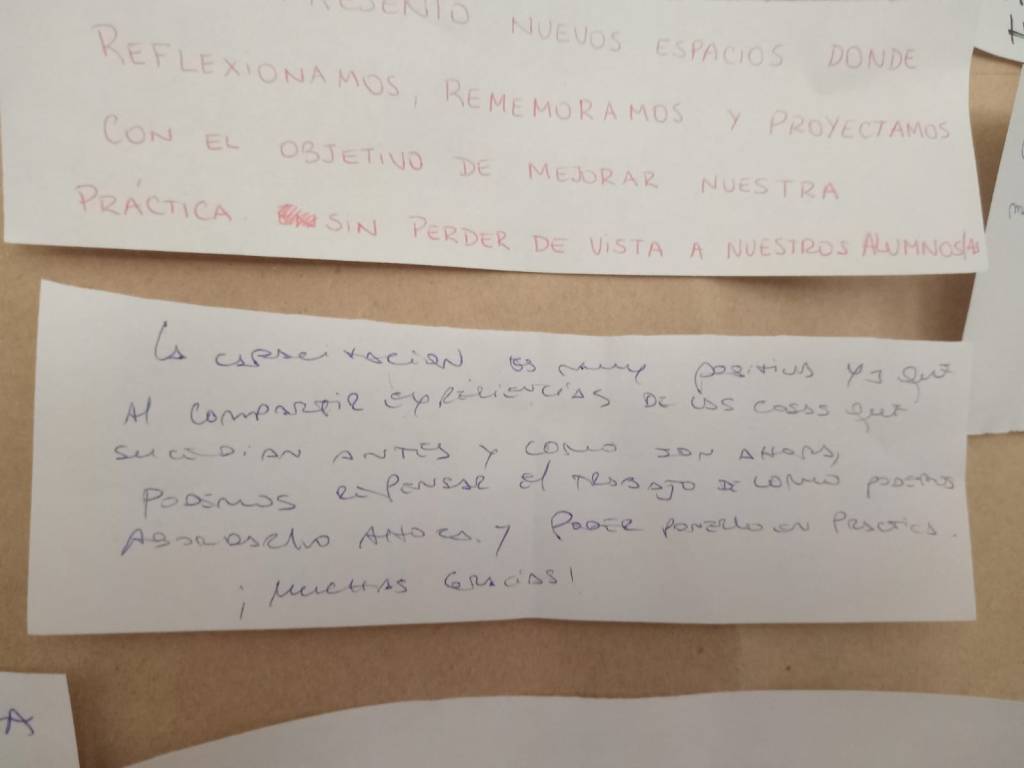 NUEVOS ESPACIOS DONDE
REFLEXIONAMOS, REMEMORAMOS Y PROYECTAMOS
CON EL OBJETIVO DE MEJORAR NUESTRA
PRÁCTICA. SIN PERDER DE VISTA A NUESTROS ALUMNOS/AS
La capacitación es muy positiva ya que
Al compartir experiencias DE las cosas que
sucedían ANTES y como son AHORA,
PODEMOS repensar el TRABAJO DE como podemos
Abordarlo AHORA. y PODER ponerlo en practica.
¡MUCHAS GRACIAS!
A